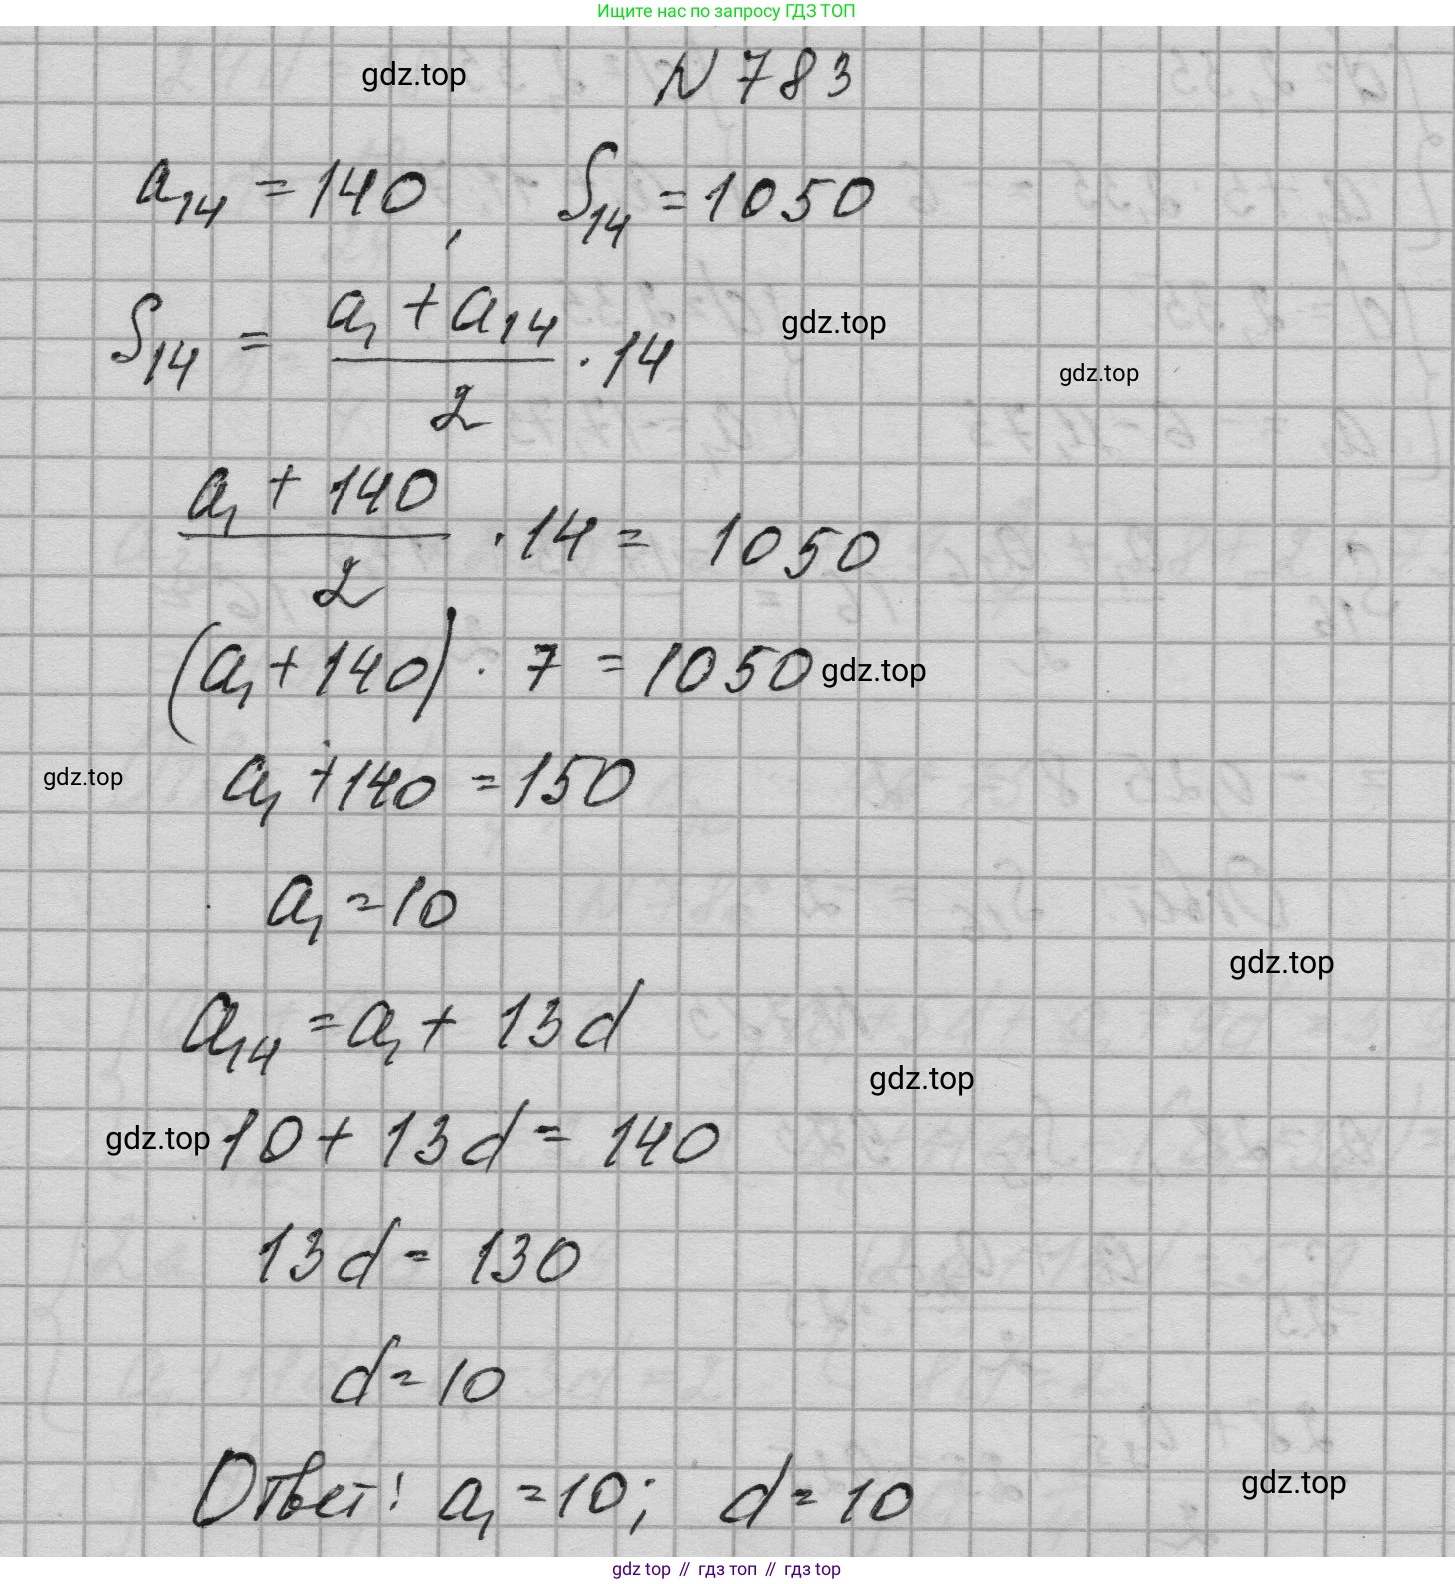 Ищите нас по запросу ГДЗ ТОП
gdz.top
N 783
a₁₄ = 140, S₁₄ = 1050
S₁₄ = (a₁ + a₁₄)/2 · 14
gdz.top
gdz.top
(a₁ + 140)/2 · 14 = 1050
(a₁ + 140) · 7 = 1050
gdz.top
gdz.top
a₁ + 140 = 150
a₁ = 10
gdz.top
a₁₄ = a₁ + 13d
gdz.top
gdz.top
10 + 13d = 140
13d = 130
d = 10
Ответ: a₁ = 10; d = 10
gdz.top
gdz top // гдз топ // гдз top